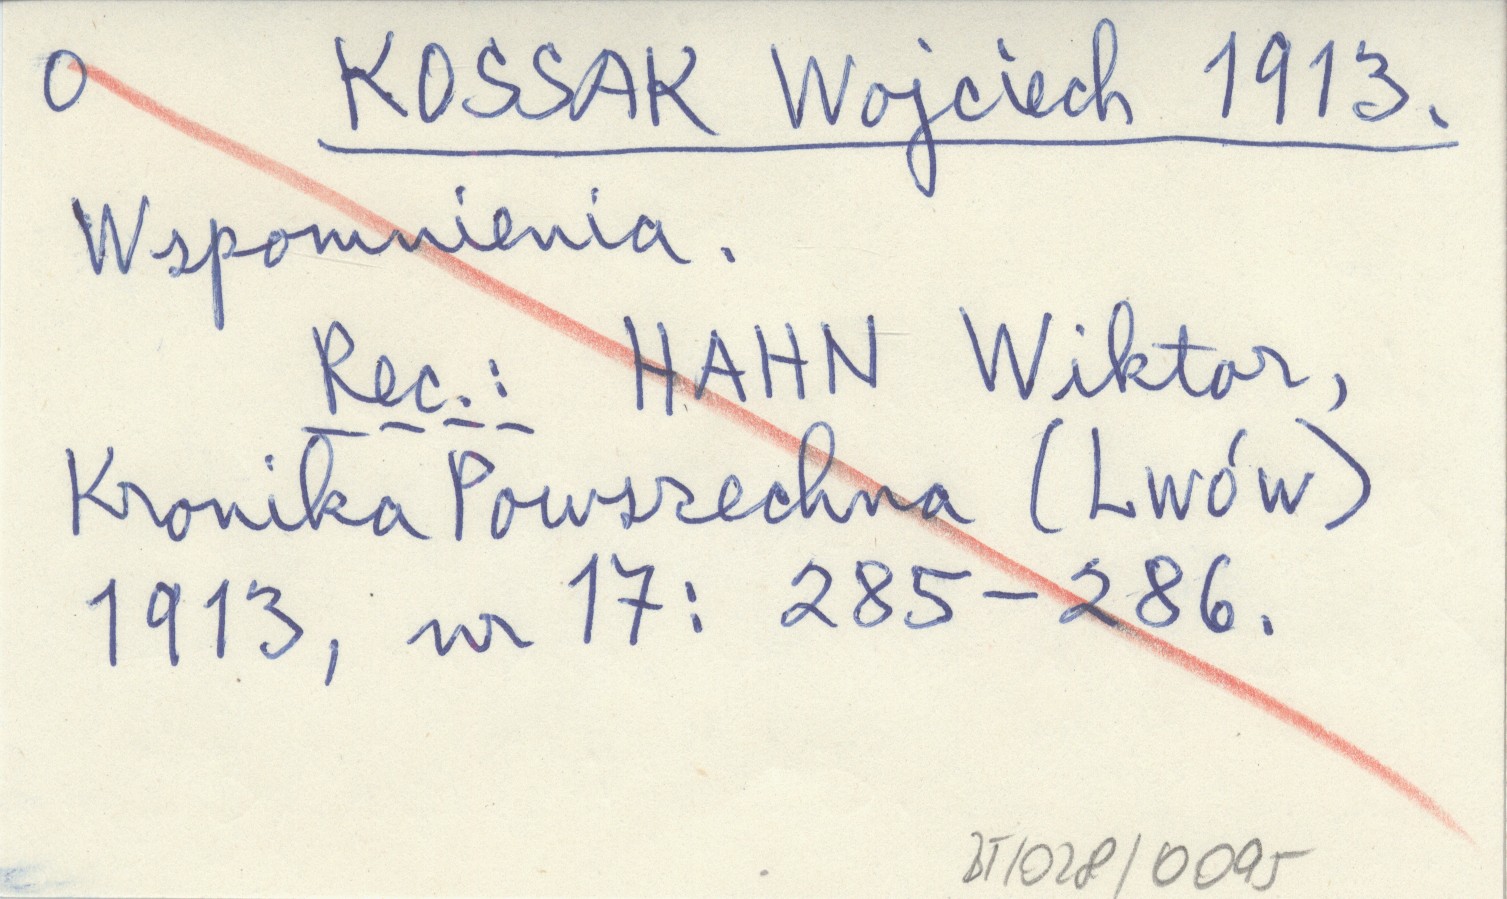 O KOSSAK Wojciech 1913.
Wspomnienia.
Rec.: HAHN Wiktor,
Kronika Powszechna (Lwów)
1913, nr 17: 285-286.
BT/028/0095